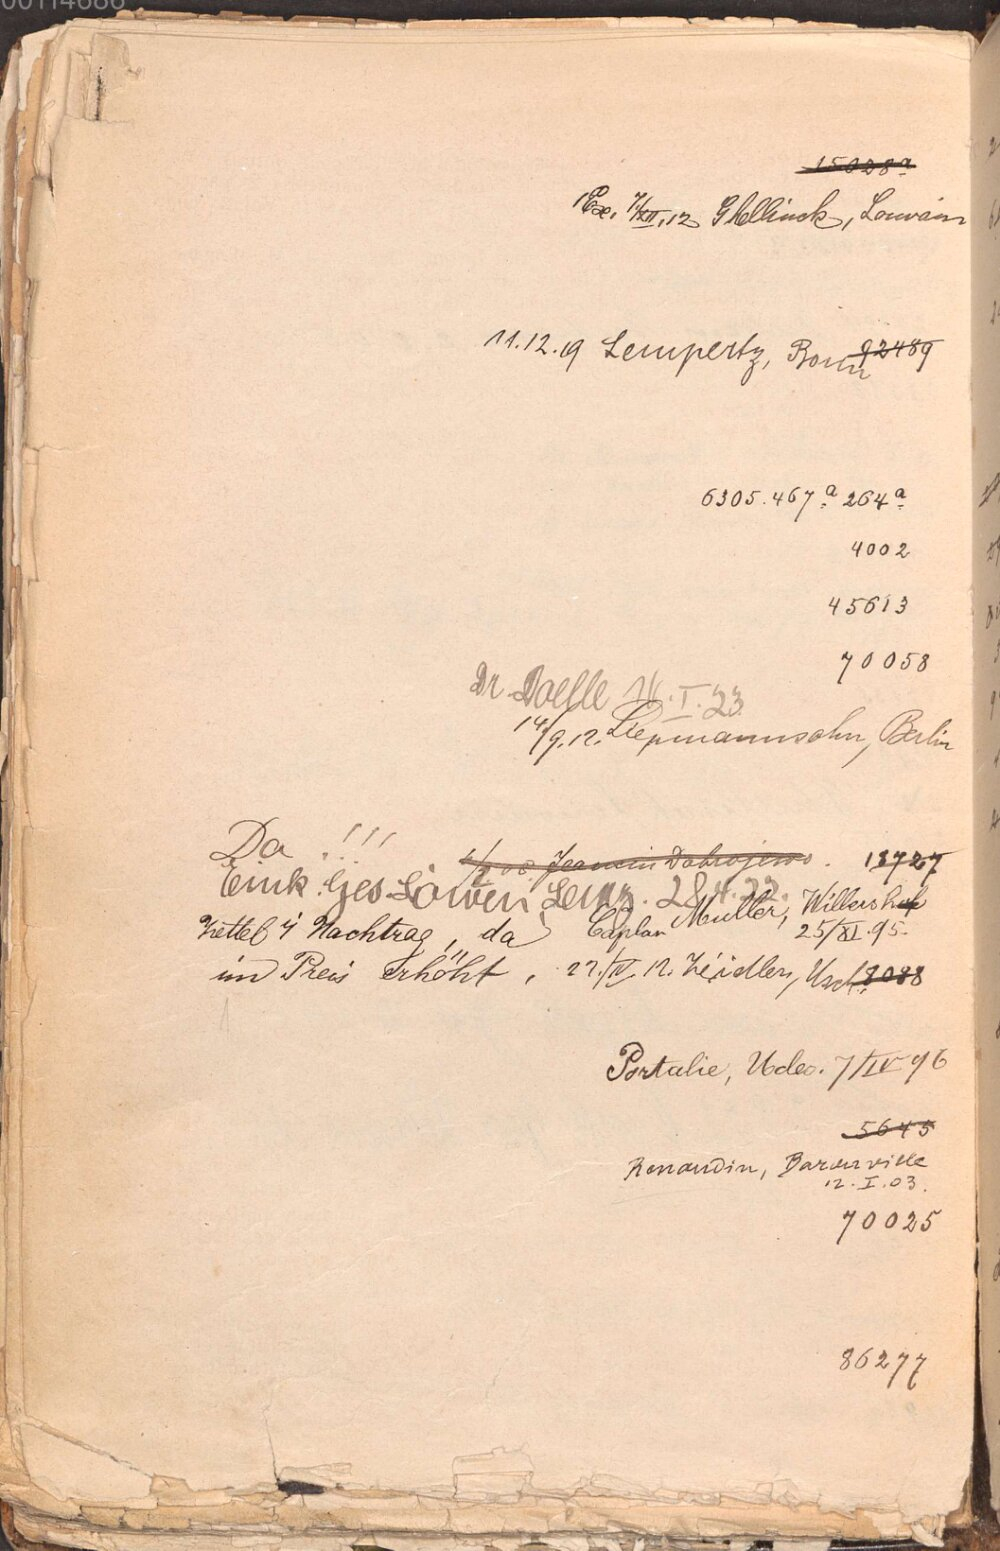 00114686
15028a
1 Ex. 7/XII.12 Ghellinck, Louvain
11.12.19 Lempertz, Bonn 92489
6305.467a 264a
4002
45613
70058
Dr. 14.I.23
14/9.12. Liepmannssohn, Berlin
Da !!! 18727
Eink. Ges Löwen, Lenz. 28.4.22.
Caplan Müller, Willershof
Zettel i Nachtrag, da 25/XI.95.
im Preis erhöht, 27./IV.12. Zeidler, 8088
Portalie, Ucles. 7/IV 96
5645
Renaudin,
12.I.03.
70025
86277